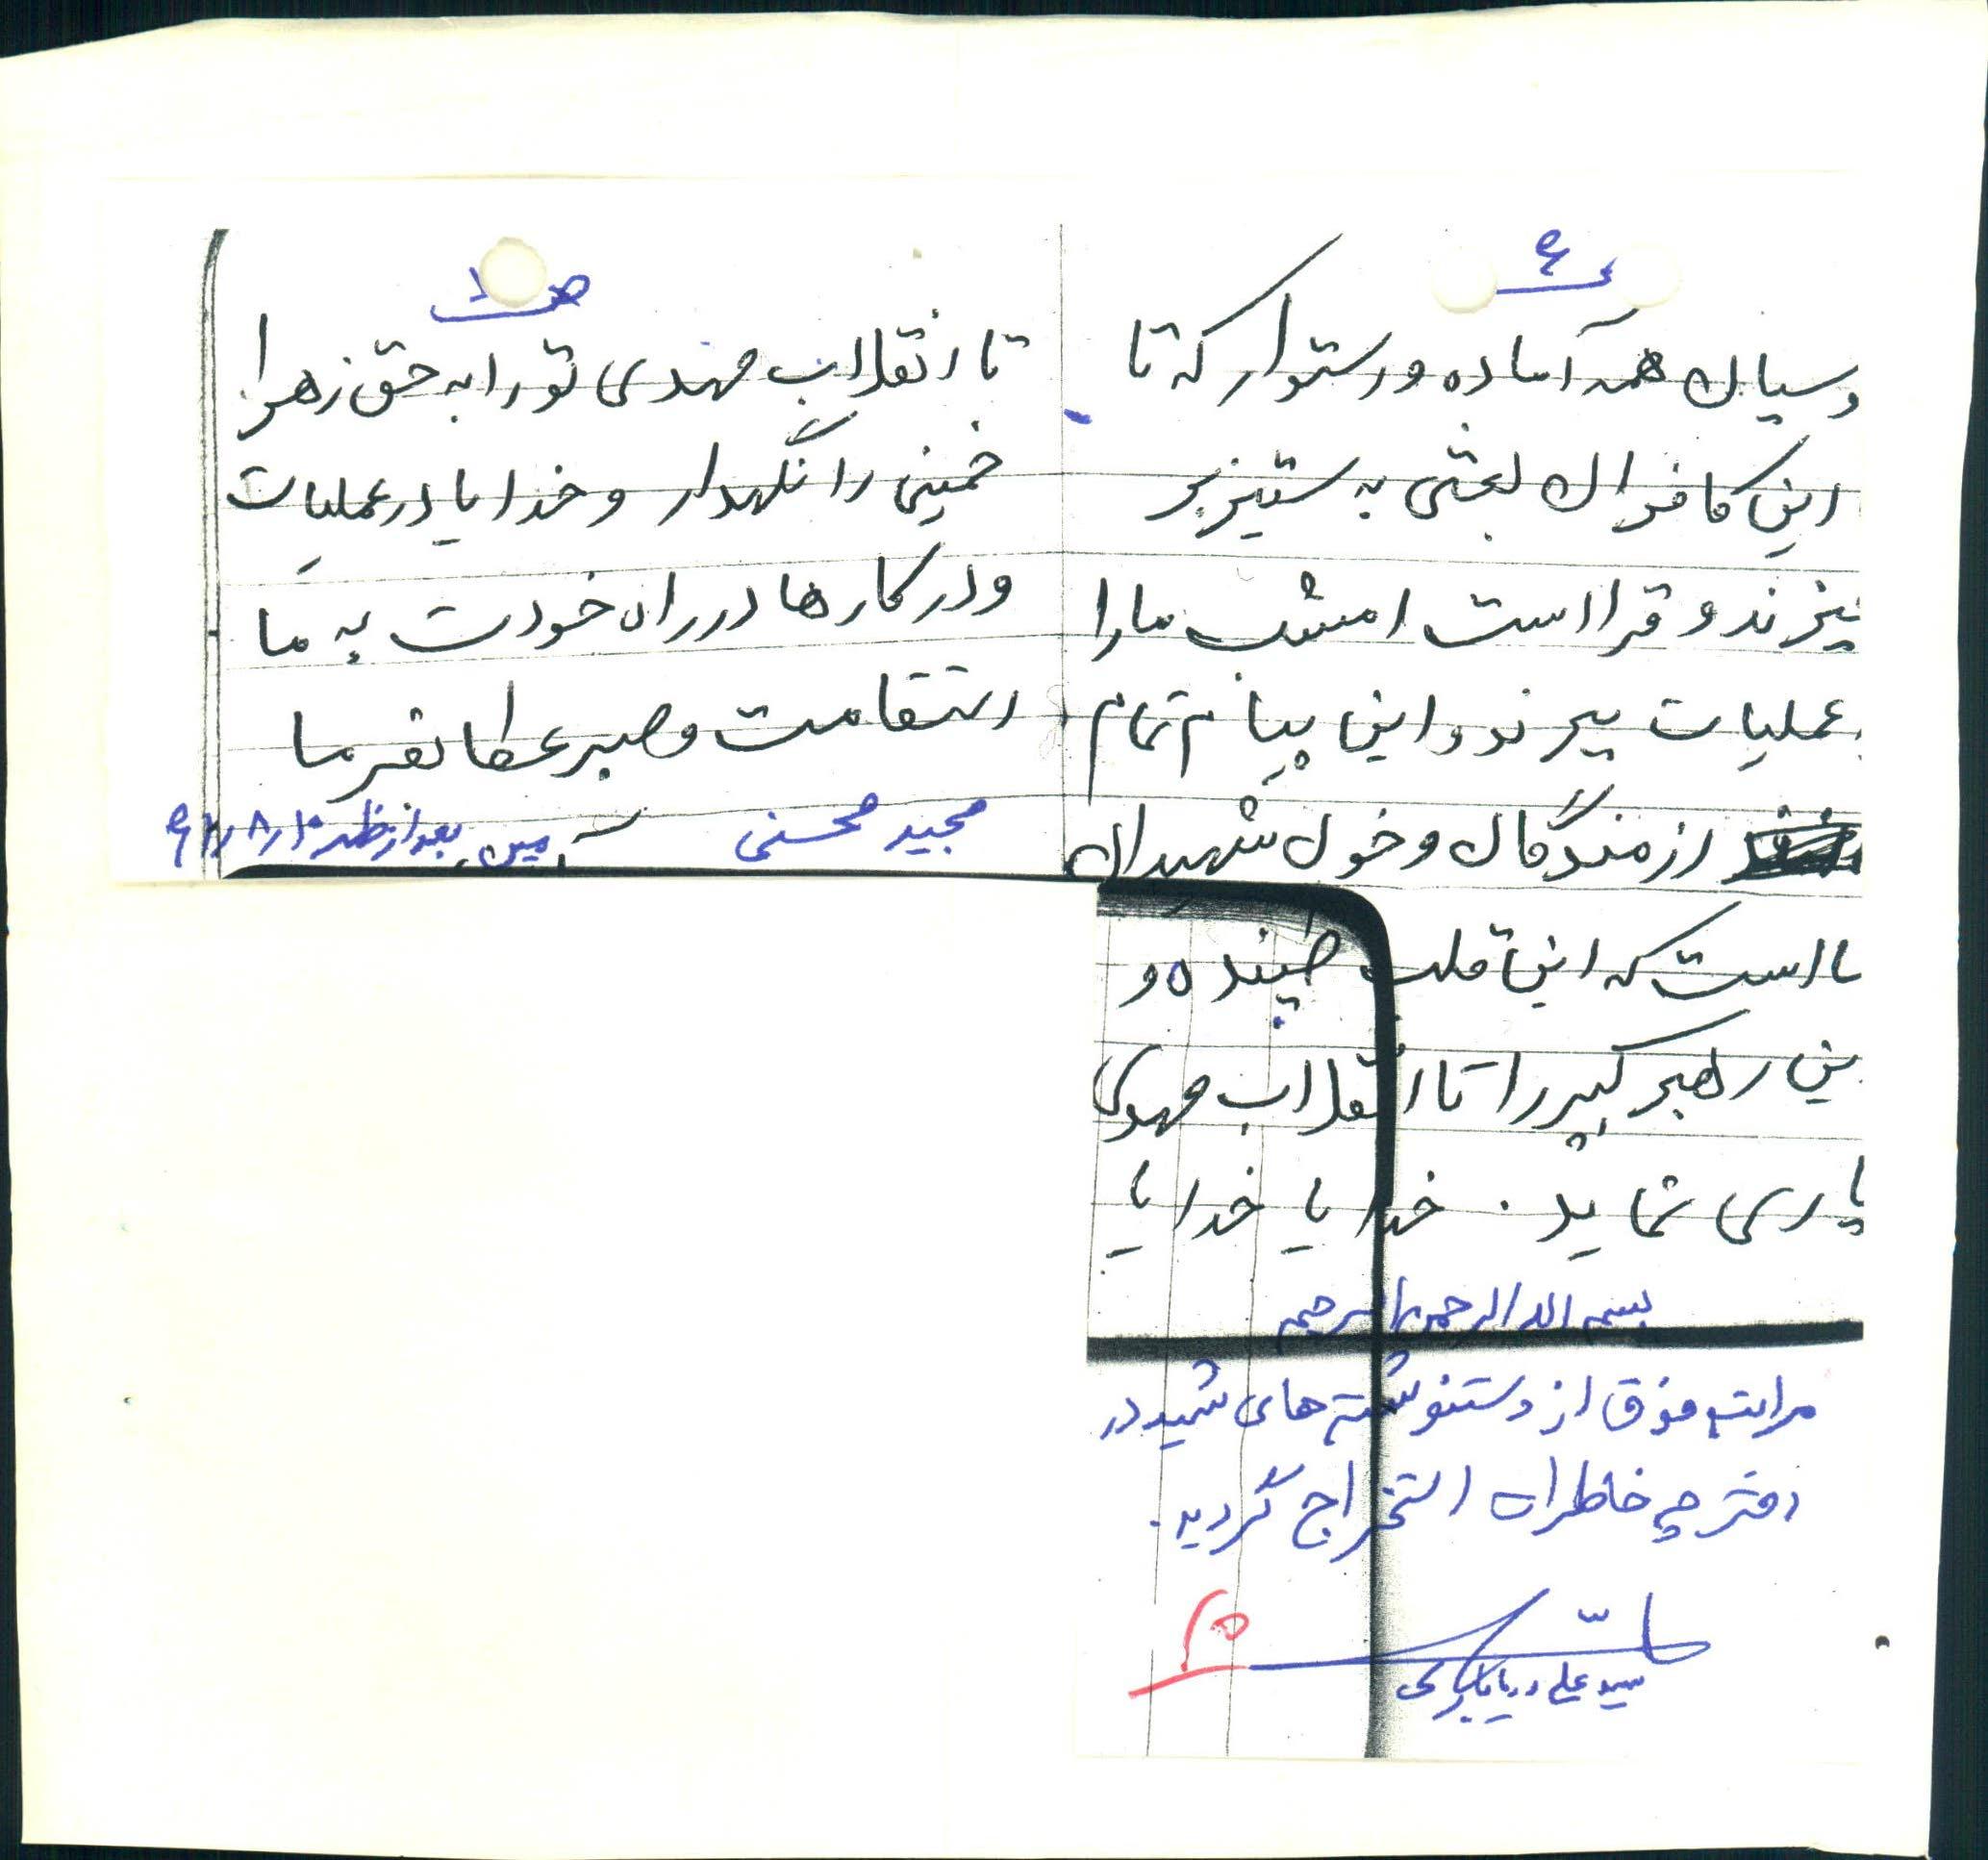 ۶
و سپاه همه آماده و رستوار که تا
این کافران بعثی به ستیز بر
نیزند و قرا است امشب ما را
عملیات ببرند و این پیام تمام
رزمندگان و خون شهیدان
ما است که این قلب طپنده و
ین رهبر کبیر را تا انقلاب مهدی
یاری نماید. خدایا خدایا
بسم الله الرحمن الرحیم
مراتب فوق از دستنوشته های شهید در
دفترچه خاطرات استخراج گردید.
سید علی
۲۵
تا انقلاب مهدی تو را به حق زهرا
خمینی را نگهدار و خدایا در عملیات
و در کارها در راه خودت به ما
استقامت و صبر عطا بفرما
آمین
مجید محسنی بعدازظهر